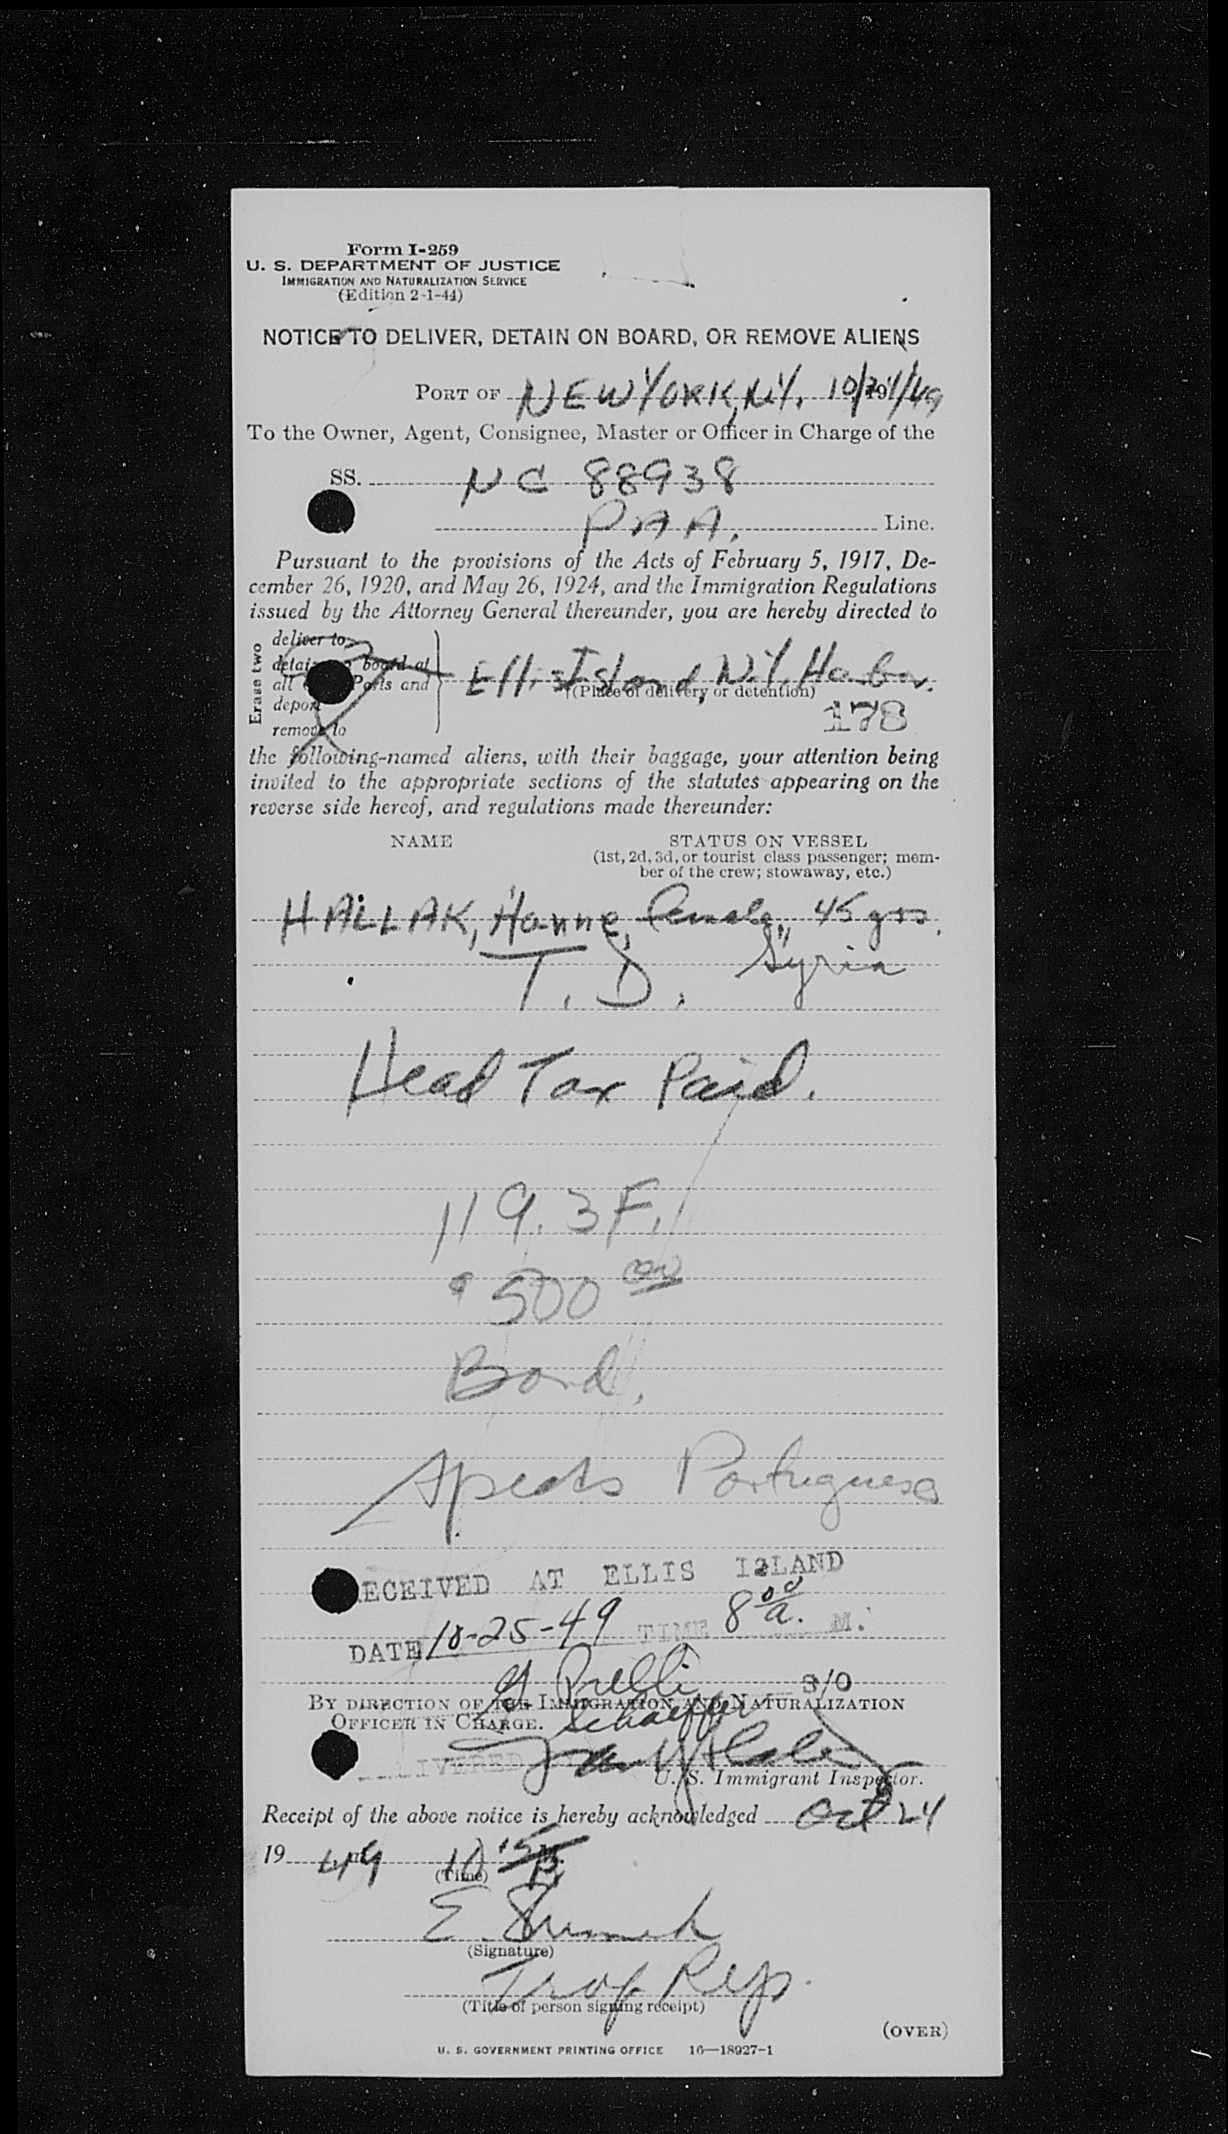 Form I-259
U. S. DEPARTMENT OF JUSTICE
IMMIGRATION AND NATURALIZATION SERVICE
(Edition 2-1-44)
NOTICE TO DELIVER, DETAIN ON BOARD, OR REMOVE ALIENS
PORT OF NEW YORK, N.Y. 10/24/49
To the Owner, Agent, Consignee, Master or Officer in Charge of the
SS. NC 88938
P.A.A. Line.
Pursuant to the provisions of the Acts of February 5, 1917, De-
cember 26, 1920, and May 26, 1924, and the Immigration Regulations
issued by the Attorney General thereunder, you are hereby directed to
Erase two
deliver to
detain on board at
all Ports and
deport
remove to
Ellis Island, N.Y. Harbor.
(Place of delivery or detention)
178
the following-named aliens, with their baggage, your attention being
invited to the appropriate sections of the statutes appearing on the
reverse side hereof, and regulations made thereunder:
NAME STATUS ON VESSEL
(1st, 2d, 3d, or tourist class passenger; mem-
ber of the crew; stowaway, etc.)
HALLAK, Hanne, female, 45 yrs.
T. D. Syria
Head Tax Paid.
119.3F.
$500 00
Bond.
Speaks Portuguese
RECEIVED AT ELLIS ISLAND
DATE 10-25-49 TIME 8 00 a. M.
S/O
BY DIRECTION OF THE IMMIGRATION AND NATURALIZATION
OFFICER IN CHARGE. Schaeffer
U. S. Immigrant Inspector.
Receipt of the above notice is hereby acknowledged Oct 24
19 49 10 15
(Time)
E.
(Signature)
Traf Rep.
(Title of person signing receipt)
(OVER)
U. S. GOVERNMENT PRINTING OFFICE 16—18927-1